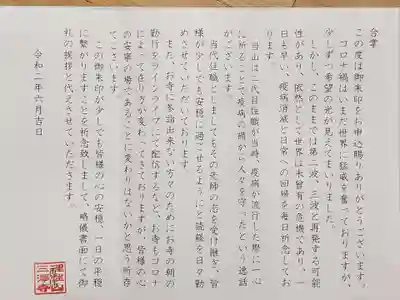 合掌
この度は御朱印をお申込賜りありがとうございます。
コロナ禍はいまだ世界に猛威を奮っておりますが、
少しずつ希望の光が見えてまいりました。
しかし、このままでは第二波、三波と再発する可能
性があり、依然として世界は未曾有の危機であり、一
日も早い、疫病消滅と日常への回帰を毎日祈念してお
ります
当山は二代目住職が当時、疫病が流行した際に一心
に祈ることで疫病の禍から人々を守ったという逸話
がございます。
当代住職としましてもその先師の志を受け継ぎ、皆
様が少しでも安穏に過ごせるようにと読経を日々勤
めさせていただいております。
また、お寺に参詣出来ない方々のためにお寺の朝の
勤行をライブラインにて配信するなど、お寺もコロナ
によって在り方が変わってきておりますが、皆様の心
の安寧の場であることに変わりはないかと思う所存
でございます。
この御朱印が少しでも皆様の心の安穏、一日の平穏
に繋がりますことを心祈念致しまして、略儀書面にて御
礼の挨拶と代えさせていただきます。
令和二年六月吉日